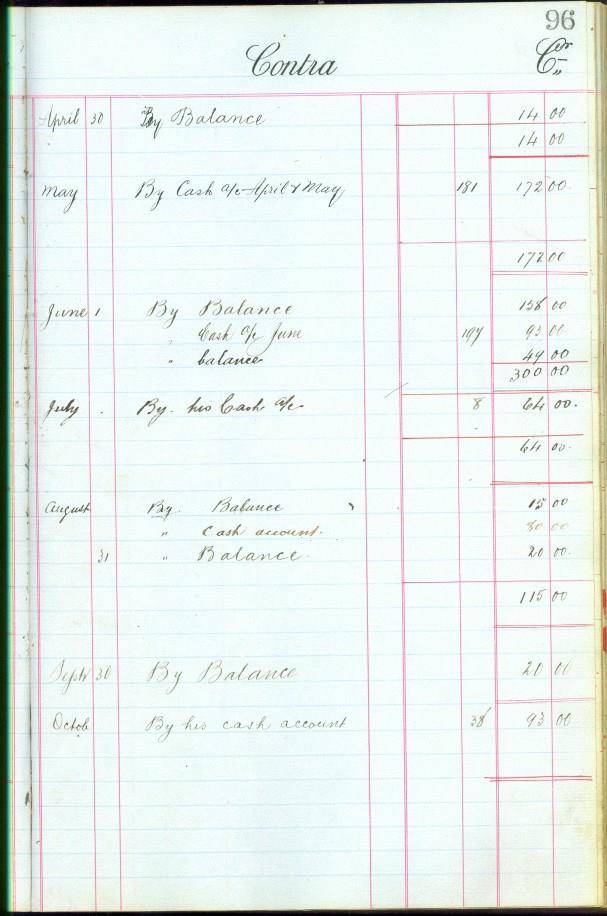 96
Contra Cr
April 30 By Balance 14 00
14 00
May By Cash a/c April & May 181 172 00
172 00
June 1 By Balance 158 00
" Cash a/c June 197 93 00
" balance 49 00
300 00
July . By his Cash a/c 8 64 00.
64 00.
August By Balance 15 00
" Cash account. 80 00
31 " Balance. 20 00.
115 00
Septr 30 By Balance 20 00
Octob By his cash account 38 93 00.